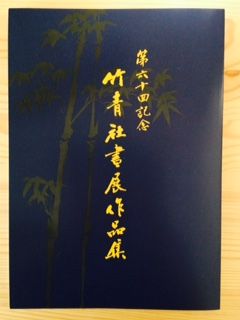 第六十回記念
竹青社書展作品集